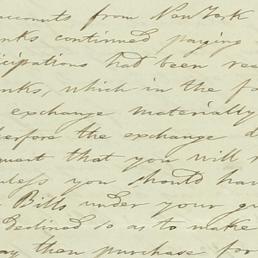 accounts from New York
continued paying
cipations had been rea
nks, which in the fo
exchange materially
before the exchange d
ment that you will
unless you should hav
Bills under your gu
declined so as to make
than purchase for